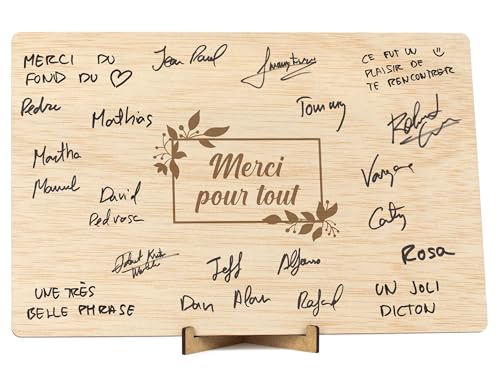 MERCI DU
FOND DU ♡
Jean Paul
CE FUT UN ☺
PLAISIR DE
TE RENCONTRER
Pedro
Mathias
Tommy
Robert
Martha
Merci
pour tout
Manuel
David
Pedrosa
Cathy
Rosa
Jeff
Alfonso
UNE TRÈS
BELLE PHRASE
Dan
Alan
Rafael
UN JOLI
DICTON